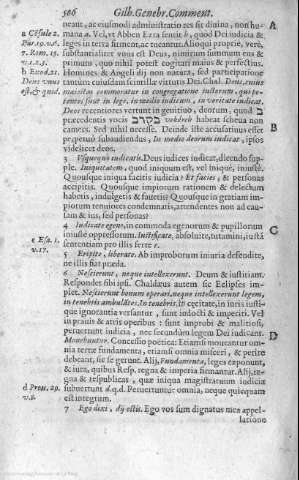 506 Gilb. Genebr. Comment.
neant, ac eiusmodi administratio res sit diuina, non hu-
a 2. Paral. mana a. Vel, vt Abben Ezra sentit b, quod Dei iudicia &
leges in terra firment, ac tueantur. Alioqui propriè, verè,
substantialiter vnus est Deus, nimirum summum ens &
primum, quo nihil potest cogitari maius & perfectius.
b Exod. 21. Homines & Angeli dij non natura, sed participatione
tantum eiusdam similis virtutis Dei. Chal. Deus, cuius
maiestas commoratur in congregatione iustorum, qui po-
tentes sunt in lege, in medio iudicum, in veritate iudicat.
Deos recentiores vertunt deorum, quod ב
præcedentis vocis בקרב bekereb habeat scheua non
camets. Sed nihil necesse. Deinde iste accusatiuus esset
perperàm subaudiendus, In medio deorum iudicat, ipsos
videlicet deos.
3 Vsquequo iudicatis. Deus iudices iudicat, dicendo sup-
ple. Iniquitatem, quod iniquum est, vel iniquè, iniustè.
Quousque iniqua facitis iudicia? Et facies, & personas
accipitis. Quousque impiorum rationem & delectum
habetis, indulgetis & fauetis? Quousque in gratiam im-
piorum tenuiores condemnatis, attendentes non ad cau-
sam & ius, sed personas?
4 Iudicate egeno, in commoda egenorum & pupillorum
iniustè oppressorum. Iustificate, absoluite, tutamini, iustā
c Esa. 1. sententiam pro illis ferte c.
v. 17.
5 Eripite, liberate. Ab improborum iniuria defendite,
ne illis fiat præda.
6 Nescierunt, neque intellexerunt. Deum & iustitiam.
Respondet sibi ipsi. Chaldæus autem sic Eclipses im-
plet. Nescierunt bonum operari, neque intellexerunt legem,
in tenebris ambulāt. In tenebris, in cęcitate, in iuris iusti-
que ignorantia versantur, sunt indocti & imperiti. Vel
in prauis & atris operibus: sunt improbi & malitiosi,
peruertunt iudicia, nec secundùm legem Dei iudicant.
Mouebuntur. Concessio poëtica: Etiamsi moueantur om-
nia terræ fundamenta, etiamsi omnia misceri, & perire
debeant, sic se gerunt. Alij, Fundamenta, leges capiunt,
& iura, quibus Resp. regna & imperia firmantur. Alij, re-
d Prou. 29. gna & respublicas, quæ iniqua magistratuum iudicia
v. 8. subuertunt d. q. d. Peruertuntur omnia, neque quisquam
est integrum.
7 Ego dixi, dij estis. Ego vos sum dignatus mea appel-
latione